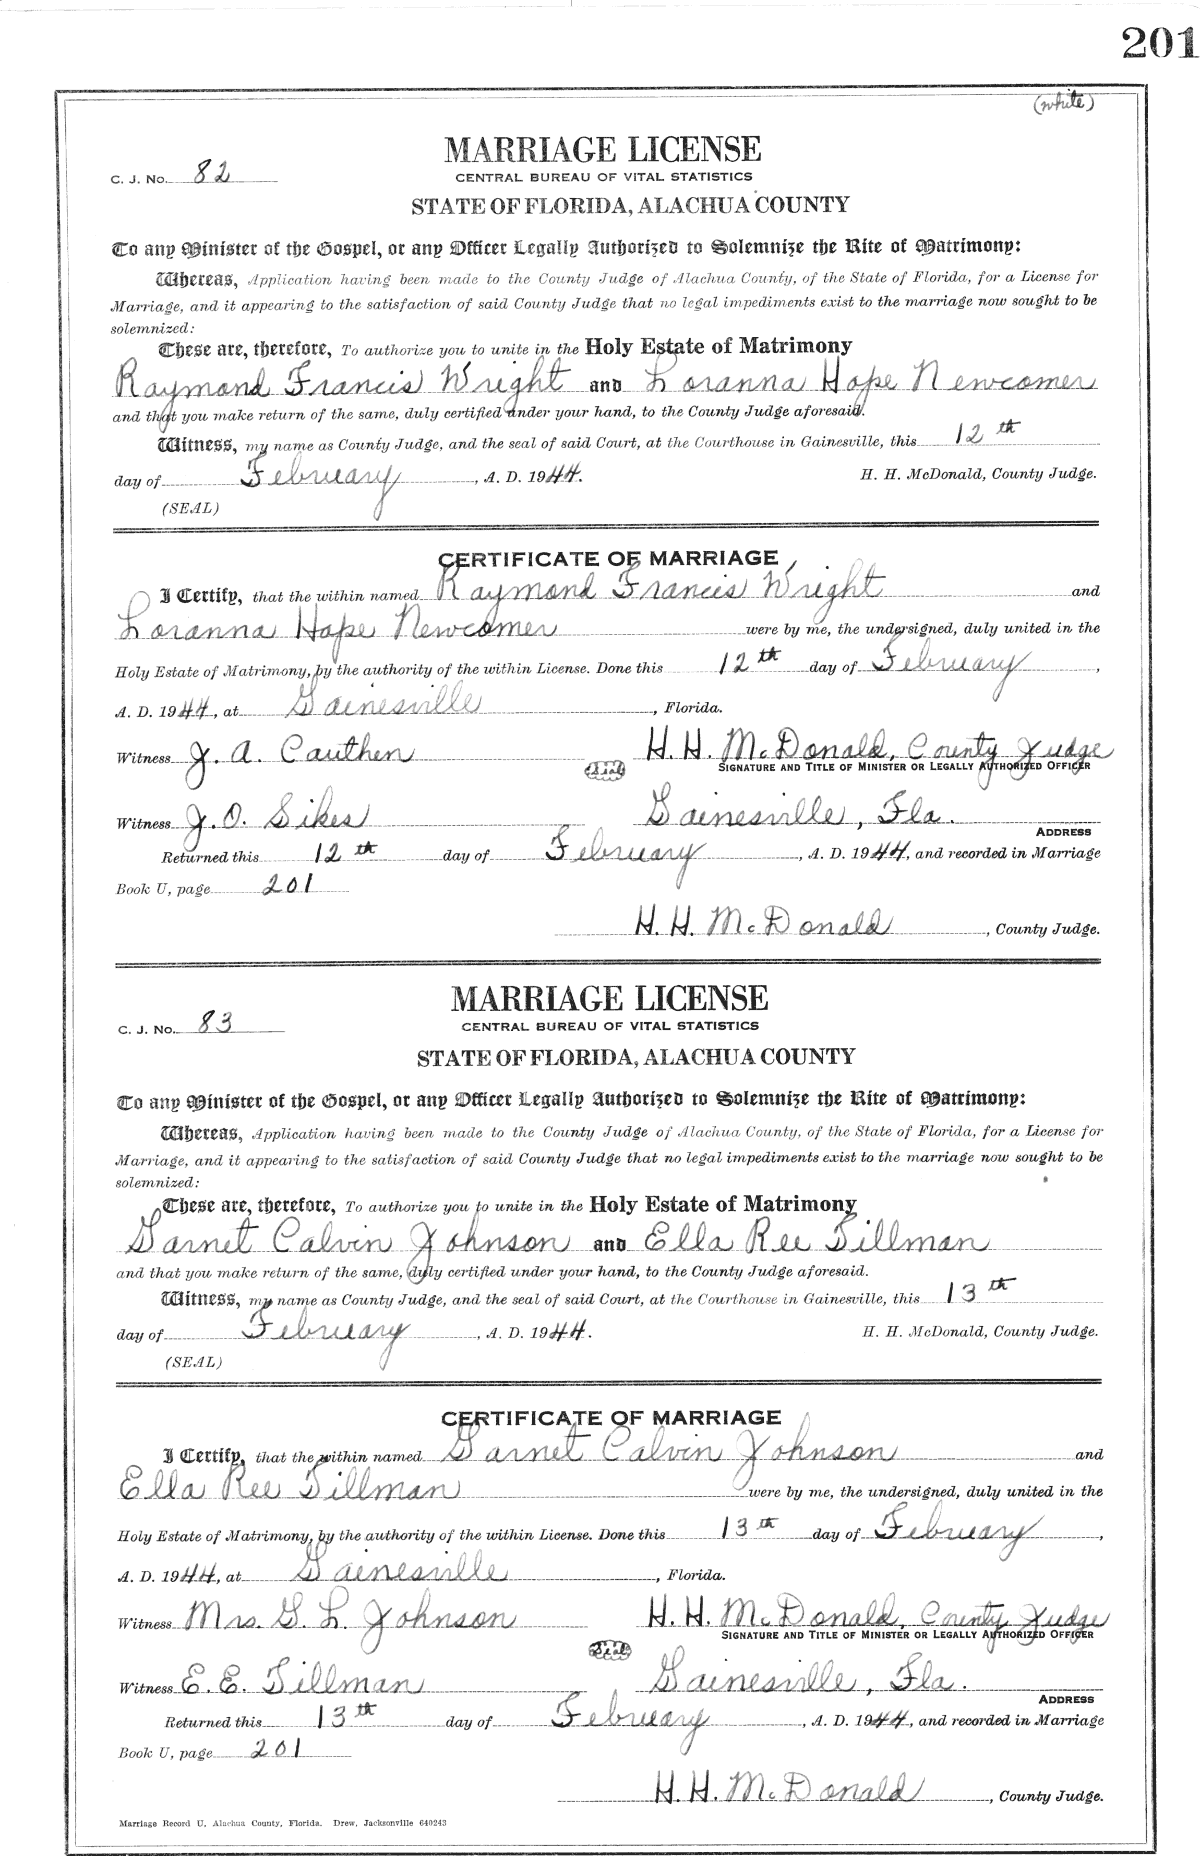 201
(white)
MARRIAGE LICENSE
C. J. No. 82
CENTRAL BUREAU OF VITAL STATISTICS
STATE OF FLORIDA, ALACHUA COUNTY
To any Minister of the Gospel, or any Officer Legally Authorized to Solemnize the Rite of Matrimony:
Whereas, Application having been made to the County Judge of Alachua County, of the State of Florida, for a License for
Marriage, and it appearing to the satisfaction of said County Judge that no legal impediments exist to the marriage now sought to be
solemnized:
These are, therefore, To authorize you to unite in the Holy Estate of Matrimony
Raymond Francis Wright and Loranna Hope Newcomer
and that you make return of the same, duly certified under your hand, to the County Judge aforesaid.
Witness, my name as County Judge, and the seal of said Court, at the Courthouse in Gainesville, this 12th
day of February, A. D. 1944. H. H. McDonald, County Judge.
(SEAL)
CERTIFICATE OF MARRIAGE
I Certify, that the within named Raymond Francis Wright and
Loranna Hope Newcomer were by me, the undersigned, duly united in the
Holy Estate of Matrimony, by the authority of the within License. Done this 12th day of February,
A. D. 1944, at Gainesville, Florida.
Witness J. A. Cauthen H. H. McDonald, County Judge
Seal SIGNATURE AND TITLE OF MINISTER OR LEGALLY AUTHORIZED OFFICER
Witness J. O. Sikes Gainesville, Fla.
ADDRESS
Returned this 12th day of February, A. D. 1944, and recorded in Marriage
Book U, page 201
H. H. McDonald, County Judge.
MARRIAGE LICENSE
C. J. No. 83
CENTRAL BUREAU OF VITAL STATISTICS
STATE OF FLORIDA, ALACHUA COUNTY
To any Minister of the Gospel, or any Officer Legally Authorized to Solemnize the Rite of Matrimony:
Whereas, Application having been made to the County Judge of Alachua County, of the State of Florida, for a License for
Marriage, and it appearing to the satisfaction of said County Judge that no legal impediments exist to the marriage now sought to be
solemnized:
These are, therefore, To authorize you to unite in the Holy Estate of Matrimony
Garnet Calvin Johnson and Ella Ree Tillman
and that you make return of the same, duly certified under your hand, to the County Judge aforesaid.
Witness, my name as County Judge, and the seal of said Court, at the Courthouse in Gainesville, this 13th
day of February, A. D. 1944. H. H. McDonald, County Judge.
(SEAL)
CERTIFICATE OF MARRIAGE
I Certify, that the within named Garnet Calvin Johnson and
Ella Ree Tillman were by me, the undersigned, duly united in the
Holy Estate of Matrimony, by the authority of the within License. Done this 13th day of February,
A. D. 1944, at Gainesville, Florida.
Witness Mrs. G. L. Johnson H. H. McDonald, County Judge
Seal SIGNATURE AND TITLE OF MINISTER OR LEGALLY AUTHORIZED OFFICER
Witness E. E. Tillman Gainesville, Fla.
ADDRESS
Returned this 13th day of February, A. D. 1944, and recorded in Marriage
Book U, page 201
H. H. McDonald, County Judge.
Marriage Record U, Alachua County, Florida. Drew, Jacksonville 640243